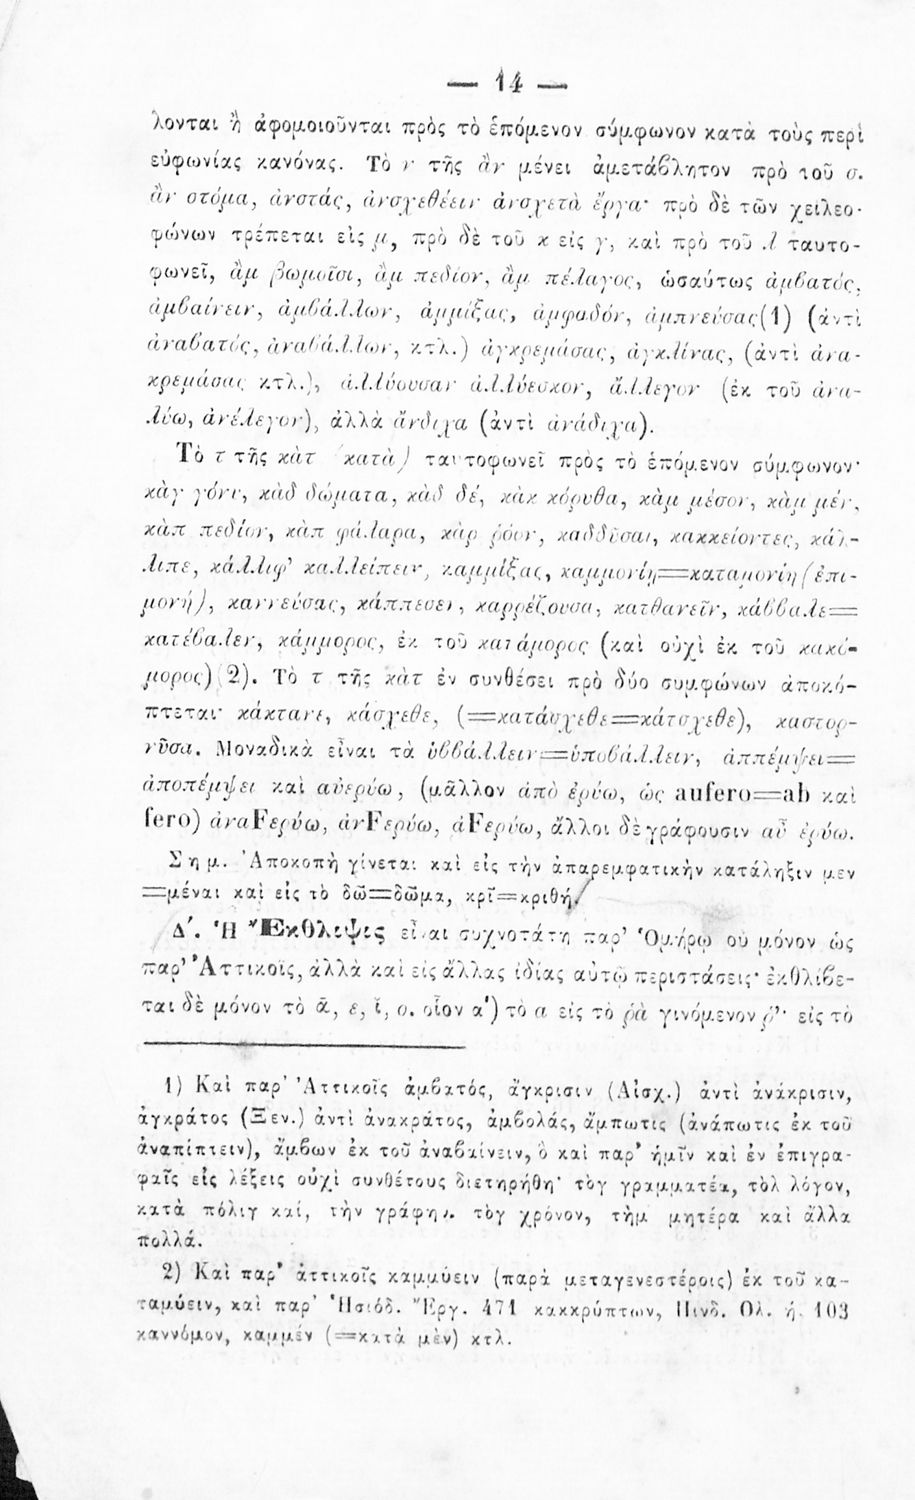 — 14 —
λονται ἢ ἀφομοιοῦνται πρὸς τὸ ἑπόμενον σύμφωνον κατὰ τοὺς περὶ
εὐφωνίας κανόνας. Τὸ ν τῆς ἂν μένει ἀμετάβλητον πρὸ τοῦ σ.
ἂν στόμα, ἀνστάς, ἀνσχεθέειν ἀνσχετὰ ἔργα· πρὸ δὲ τῶν χειλεο-
φώνων τρέπεται εἰς μ, πρὸ δὲ τοῦ κ εἰς γ, καὶ πρὸ τοῦ λ ταυτο-
φωνεῖ, ἂμ βωμοῖσι, ἂμ πεδίον, ἂμ πέλαγος, ὡσαύτως ἀμβατός,
ἀμβαίνειν, ἀμβάλλων, ἀμμίξας, ἀμφαδόν, ἀμπνεύσας(1) (ἀντὶ
ἀναβατός, ἀναβάλλων, κτλ.) ἀγκρεμάσας, ἀγκλίνας, (ἀντὶ ἀνα-
κρεμάσας κτλ.), ἀλλύουσαν ἀλλύεσκον, ἄλλεγον (ἐκ τοῦ ἀνα-
λύω, ἀνέλεγον), ἀλλὰ ἄνδιχα (ἀντὶ ἀνάδιχα).
Τὸ τ τῆς κὰτ (κατὰ) ταυτοφωνεῖ πρὸς τὸ ἑπόμενον σύμφωνον·
κὰγ γόνυ, κὰδ δώματα, κὰδ δέ, κὰκ κόρυθα, κὰμ μέσον, κὰμ μέν,
κὰπ πεδίον, κὰπ φάλαρα, κὰρ ῥόον, καδδῦσαι, κακκείοντες, κάλ-
λιπε, κάλλιφ' καλλείπειν, καμμίξας, καμμονίη=καταμονίη (ἐπι-
μονή), καννεύσας, κάππεσεν, καρρέζουσα, κατθανεῖν, κάββαλε=
κατέβαλεν, κάμμορος, ἐκ τοῦ κατάμορος (καὶ οὐχὶ ἐκ τοῦ κακό-
μορος)(2). Τὸ τ τῆς κὰτ ἐν συνθέσει πρὸ δύο συμφώνων ἀποκό-
πτεται· κάκτανε, κάσχεθε, (=κατάσχεθε=κάτσχεθε), καστορ-
νῦσα. Μοναδικὰ εἶναι τὰ ὑββάλλειν=ὑποβάλλειν, ἀππέμψει=
ἀποπέμψει καὶ αὐερύω, (μᾶλλον ἀπὸ ἐρύω, ὡς aufero=ab καὶ
fero) ἀναFερύω, ἀνFερύω, ἀFερύω, ἄλλοι δὲ γράφουσιν αὖ ἐρύω.
Σημ. Ἀποκοπὴ γίνεται καὶ εἰς τὴν ἀπαρεμφατικὴν κατάληξιν μεν
=μέναι καὶ εἰς τὸ δῶ=δῶμα, κρῖ=κριθή.
Δ΄. Ἡ Ἔκθλιψις εἶναι συχνοτάτη παρ' Ὁμήρῳ οὐ μόνον ὡς
παρ' Ἀττικοῖς, ἀλλὰ καὶ εἰς ἄλλας ἰδίας αὐτῷ περιστάσεις· ἐκθλίβε-
ται δὲ μόνον τὸ ᾰ, ε, ῐ, ο. οἷον α') τὸ α εἰς τὸ ῥὰ γινόμενον ῥ'· εἰς τὸ
1) Καὶ παρ' Ἀττικοῖς ἀμβατός, ἄγκρισιν (Αἰσχ.) ἀντὶ ἀνάκρισιν,
ἀγκράτος (Ξεν.) ἀντὶ ἀνακράτος, ἀμβολάς, ἄμπωτις (ἀνάπωτις ἐκ τοῦ
ἀναπίπτειν), ἄμβων ἐκ τοῦ ἀναβαίνειν, ὃ καὶ παρ' ἡμῖν καὶ ἐν ἐπιγρα-
φαῖς εἰς λέξεις οὐχὶ συνθέτους διετηρήθη· τὸγ γραμματέα, τὸλ λόγον,
κατὰ πόλιγ καί, τὴν γράφην. τὸγ χρόνον, τὴμ μητέρα καὶ ἄλλα
πολλά.
2) Καὶ παρ' ἀττικοῖς καμμύειν (παρὰ μεταγενεστέροις) ἐκ τοῦ κα-
ταμύειν, καὶ παρ' Ἡσιόδ. Ἔργ. 471 κακκρύπτων, Πινδ. Ὀλ. ή. 103
καννόμον, καμμέν (=κατὰ μὲν) κτλ.